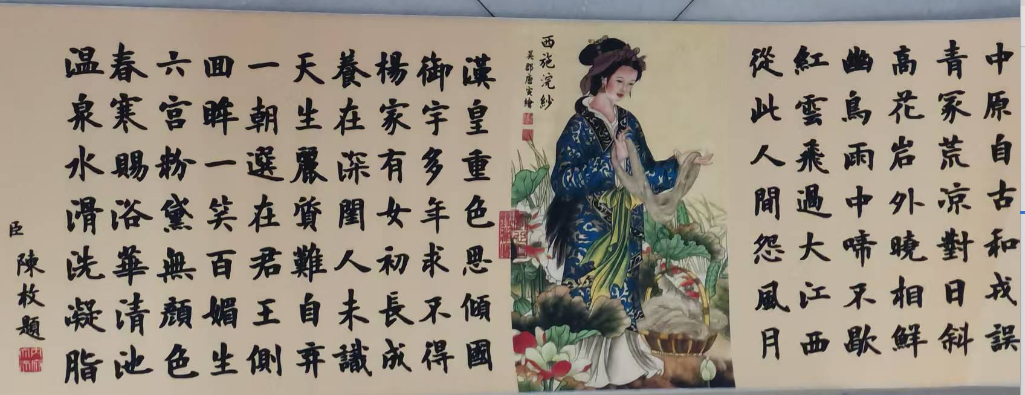 中原自古和戎誤
青冢荒凉對日斜
高花岩外曉相鮮
幽鳥雨中啼不歇
紅雲飛過大江西
從此人間怨風月
西施浣紗
吴郡唐寅繪
漢皇重色思傾國
御宇多年求不得
楊家有女初長成
養在深閨人未識
天生麗質難自弃
一朝選在君王側
囬眸一笑百媚生
六宮粉黛無顏色
春寒賜浴華清池
温泉水滑洗凝脂
臣
陳枚題